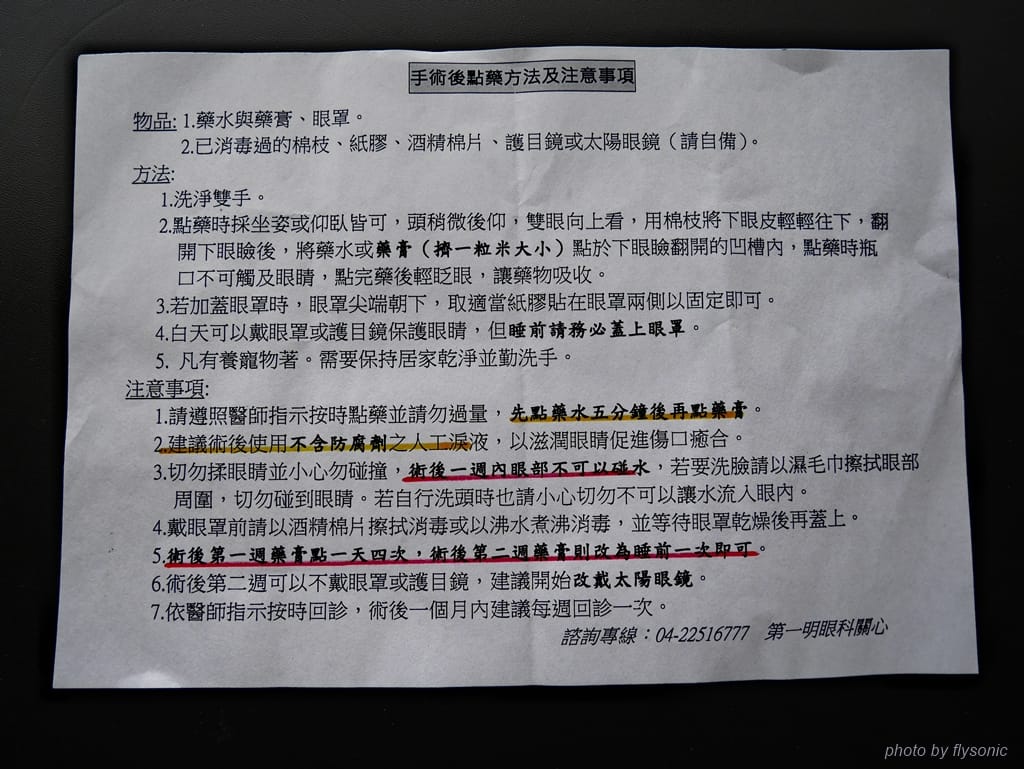 手術後點藥方法及注意事項
物品: 1.藥水與藥膏、眼罩。
2.已消毒過的棉枝、紙膠、酒精棉片、護目鏡或太陽眼鏡（請自備）。
方法:
1.洗淨雙手。
2.點藥時採坐姿或仰臥皆可，頭稍微後仰，雙眼向上看，用棉枝將下眼皮輕輕往下，翻
開下眼瞼後，將藥水或藥膏（擠一粒米大小）點於下眼瞼翻開的凹槽內，點藥時瓶
口不可觸及眼睛，點完藥後輕眨眼，讓藥物吸收。
3.若加蓋眼罩時，眼罩尖端朝下，取適當紙膠貼在眼罩兩側以固定即可。
4.白天可以戴眼罩或護目鏡保護眼睛，但睡前請務必蓋上眼罩。
5. 凡有養寵物著。需要保持居家乾淨並勤洗手。
注意事項:
1.請遵照醫師指示按時點藥並請勿過量，先點藥水五分鐘後再點藥膏。
2.建議術後使用不含防腐劑之人工淚液，以滋潤眼睛促進傷口癒合。
3.切勿揉眼睛並小心勿碰撞，術後一週內眼部不可以碰水，若要洗臉請以濕毛巾擦拭眼部
周圍，切勿碰到眼睛。若自行洗頭時也請小心切勿不可以讓水流入眼內。
4.戴眼罩前請以酒精棉片擦拭消毒或以沸水煮沸消毒，並等待眼罩乾燥後再蓋上。
5.術後第一週藥膏點一天四次，術後第二週藥膏則改為睡前一次即可。
6.術後第二週可以不戴眼罩或護目鏡，建議開始改戴太陽眼鏡。
7.依醫師指示按時回診，術後一個月內建議每週回診一次。
諮詢專線：04-22516777 第一明眼科關心
photo by flysonic